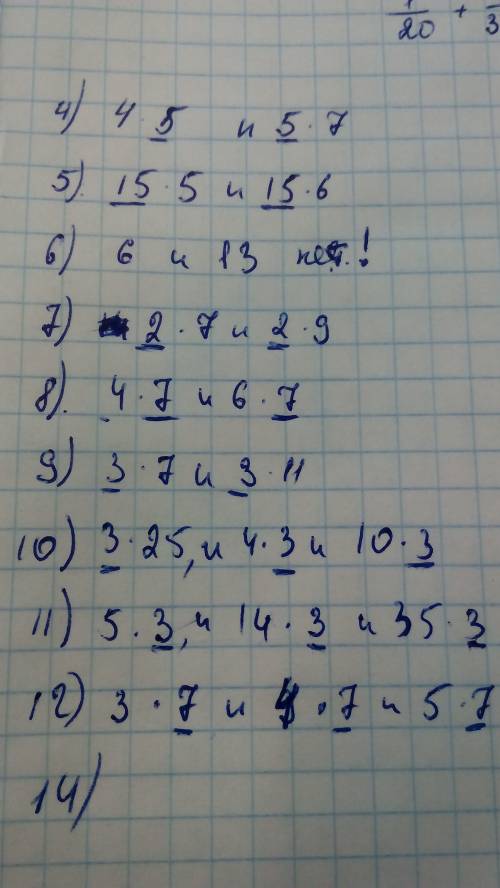 1/20 + /3
4) 4 · 5 и 5 · 7
5) 15 · 5 и 15 · 6
6) 6 и 13 нет.!
7) 2 · 7 и 2 · 9
8) 4 · 7 и 6 · 7
9) 3 · 7 и 3 · 11
10) 3 · 25, и 4 · 3 и 10 · 3
11) 5 · 3, и 14 · 3 и 35 · 3
12) 3 · 7 и 4 · 7 и 5 · 7
14)